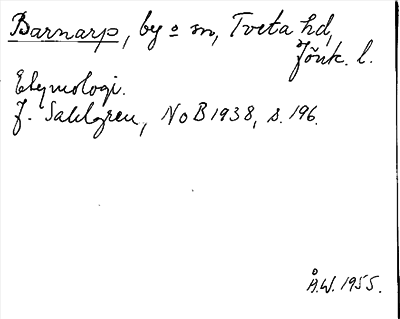 Barnarp, by o sn, Tveta hd,
Jönk. l.
Etymologi.
J. Sahlgren, NoB 1938, s. 196.
Å.W. 1955.